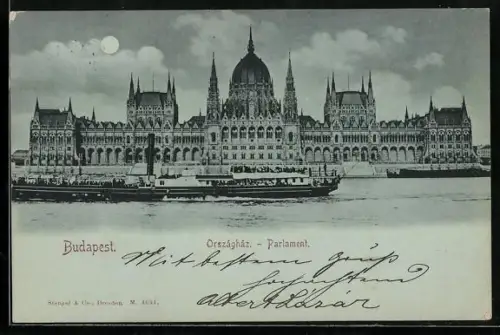 Budapest.
Országház. - Parlament.
Mit bestem Gruß
hochachtend
Albert Lázár
Stengel & Co., Dresden, M. 4691.